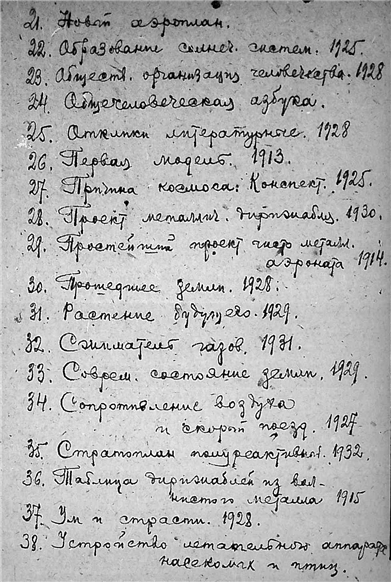 21. Новый аэроплан.
22. Образование солнеч. систем. 1925.
23. Обществ. организация человечества. 1928
24. Общечеловеческая азбука.
25. Отклики литературные. 1928
26. Первая модель. 1913.
27. Причина космоса: Конспект. 1925.
28. Проект металлич. дирижабля. 1930.
29. Простейший проект чисто металл.
аэроната 1914.
30. Прошедшее земли. 1928.
31. Растение будущего. 1929.
32. Сжиматель газов. 1931.
33. Соврем. состояние земли. 1929.
34. Сопротивление воздуха
и скорый поезд. 1927
35. Стратоплан полуреактивный. 1932.
36. Таблица дирижаблей из вол-
нистого металла 1915
37. Ум и страсти. 1928.
38. Устройство летательного аппарата
насекомых и птиц.